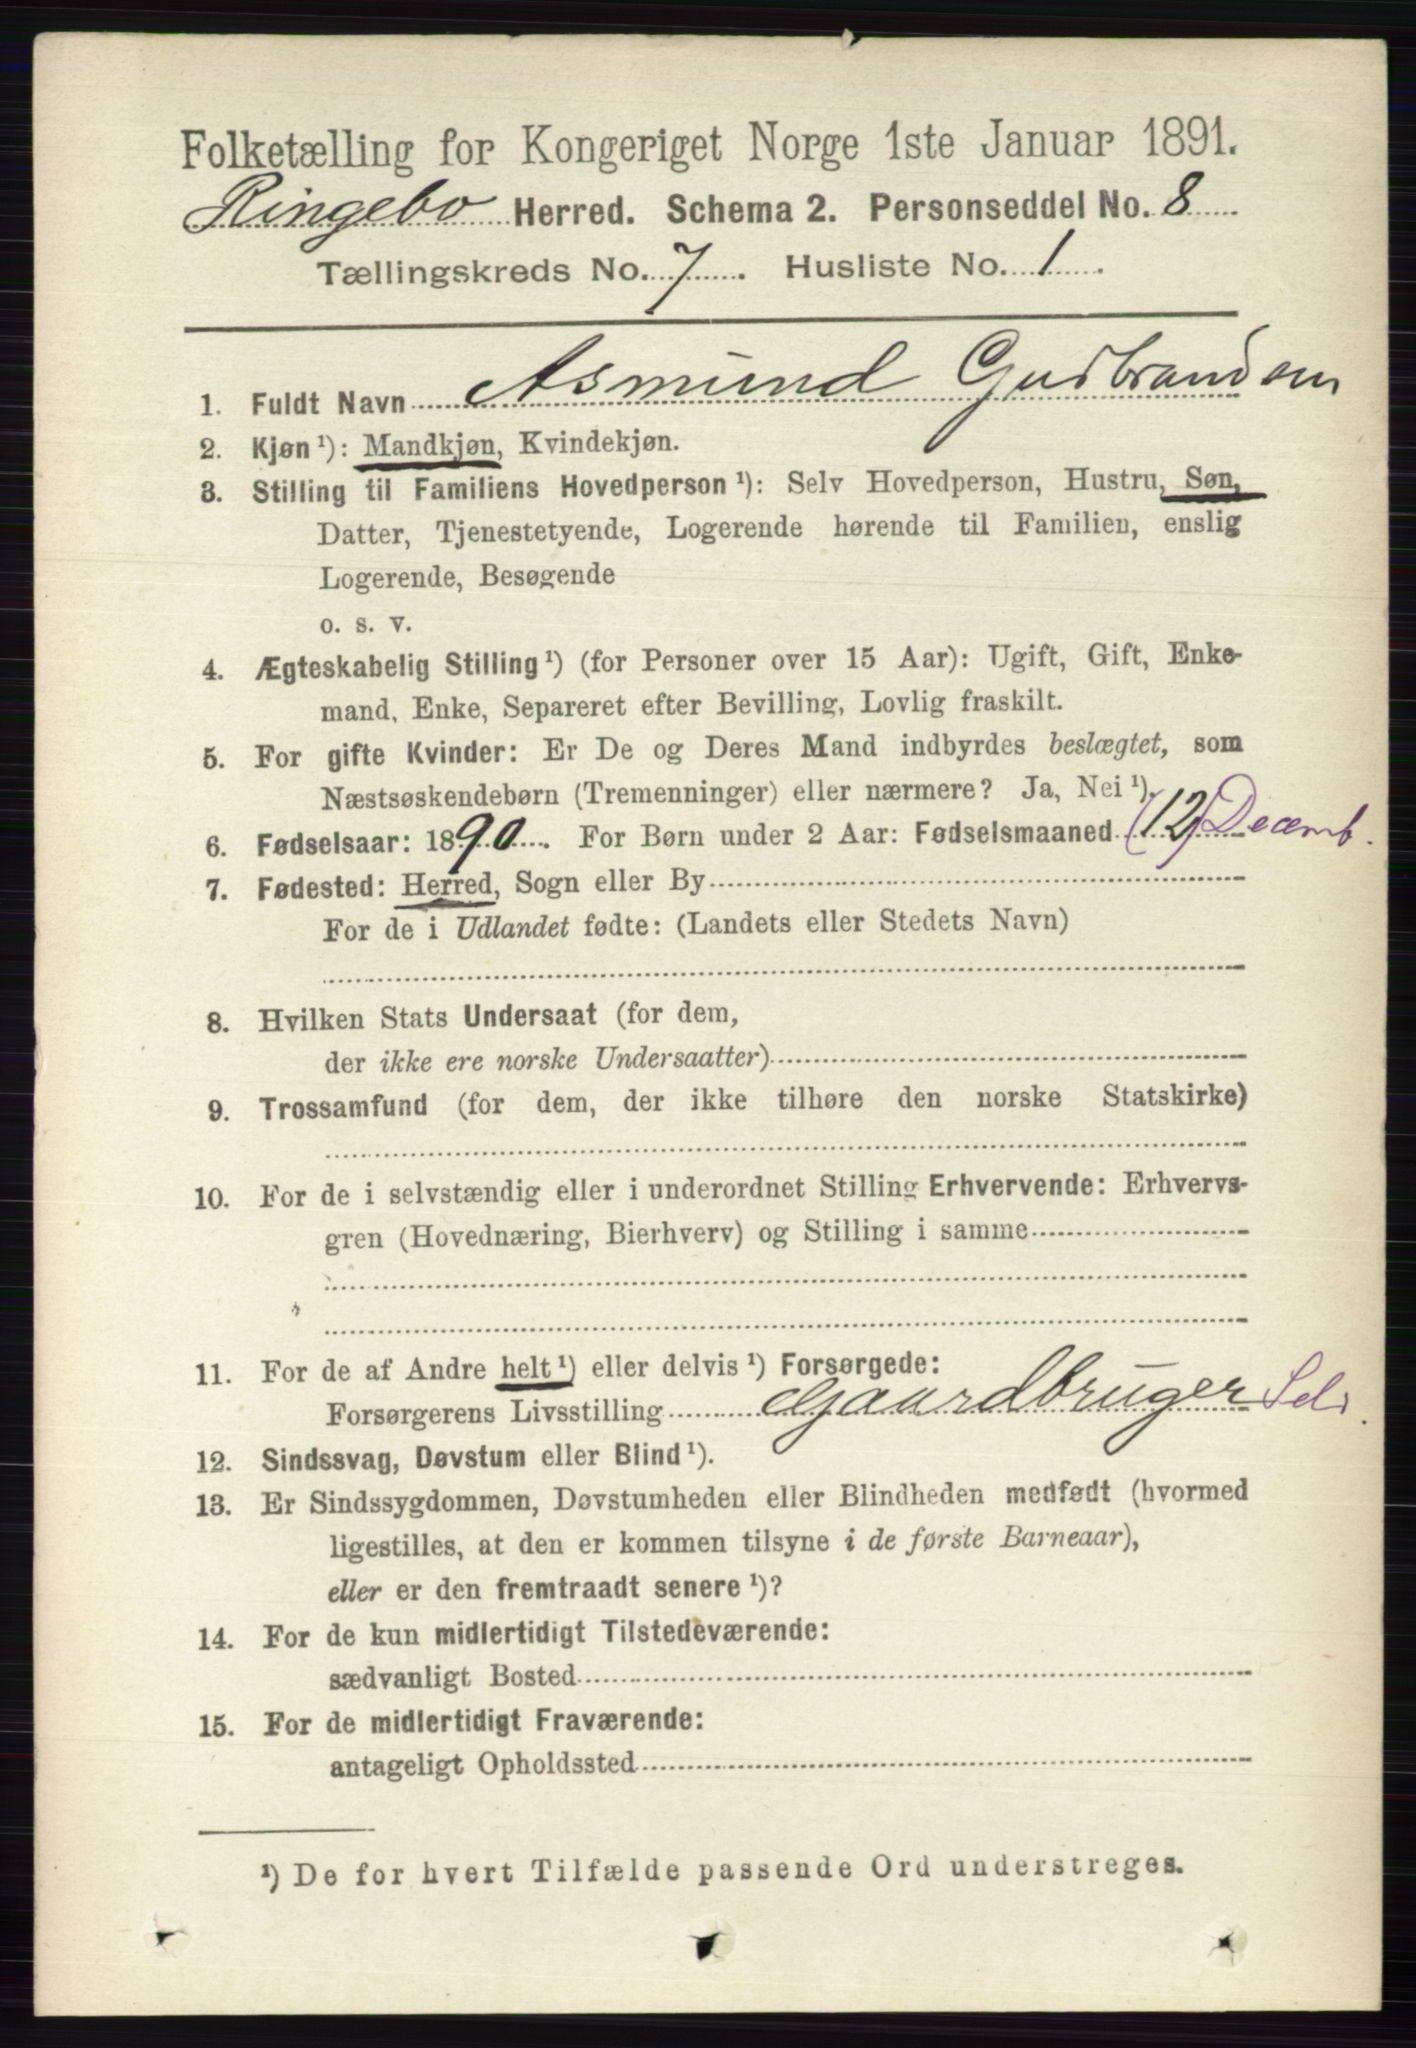 Folketælling for Kongeriget Norge 1ste Januar 1891.
Ringebo Herred. Schema 2. Personseddel No. 8
Tællingskreds No. 7. Husliste No. 1.
1. Fuldt Navn Asmund Gudbrandsen
2. Kjøn ¹): Mandkjøn, Kvindekjøn.
3. Stilling til Familiens Hovedperson ¹): Selv Hovedperson, Hustru, Søn,
Datter, Tjenestetyende, Logerende hørende til Familien, enslig
Logerende, Besøgende
o. s. v.
4. Ægteskabelig Stilling ¹) (for Personer over 15 Aar): Ugift, Gift, Enke-
mand, Enke, Separeret efter Bevilling, Lovlig fraskilt.
5. For gifte Kvinder: Er De og Deres Mand indbyrdes beslægtet, som
Næstsøskendebørn (Tremenninger) eller nærmere? Ja, Nei ¹).
6. Fødselsaar: 1890. For Børn under 2 Aar: Fødselsmaaned (12) Decemb.
7. Fødested: Herred, Sogn eller By
For de i Udlandet fødte: (Landets eller Stedets Navn)
8. Hvilken Stats Undersaat (for dem,
der ikke ere norske Undersaatter)
9. Trossamfund (for dem, der ikke tilhøre den norske Statskirke)
10. For de i selvstændig eller i underordnet Stilling Erhvervende: Erhvervs-
gren (Hovednæring, Bierhverv) og Stilling i samme
11. For de af Andre helt ¹) eller delvis ¹) Forsørgede:
Forsørgerens Livsstilling Gaardbruger Sel.
12. Sindssvag, Døvstum eller Blind ¹).
13. Er Sindssygdommen, Døvstumheden eller Blindheden medfødt (hvormed
ligestilles, at den er kommen tilsyne i de første Barneaar),
eller er den fremtraadt senere ¹)?
14. For de kun midlertidigt Tilstedeværende:
sædvanligt Bosted
15. For de midlertidigt Fraværende:
antageligt Opholdssted
¹) De for hvert Tilfælde passende Ord understreges.